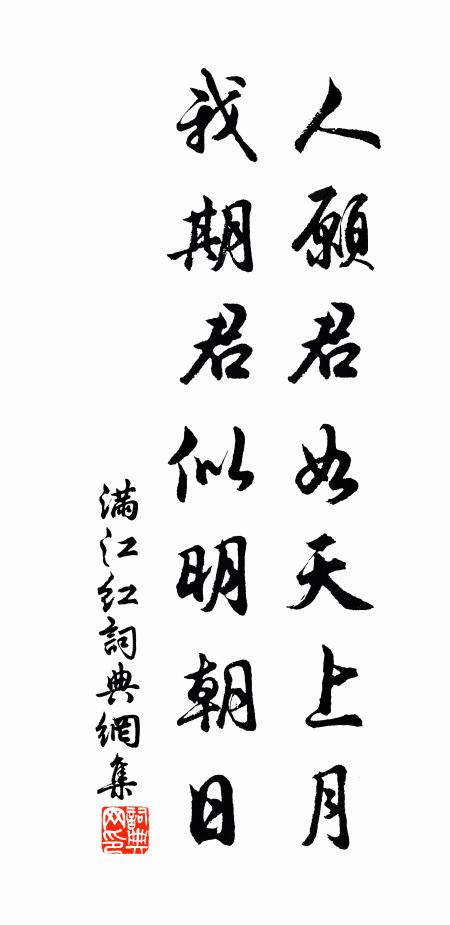 人願君如天上月
我期君似明朝日
滿江紅詞典網集
詞典网印